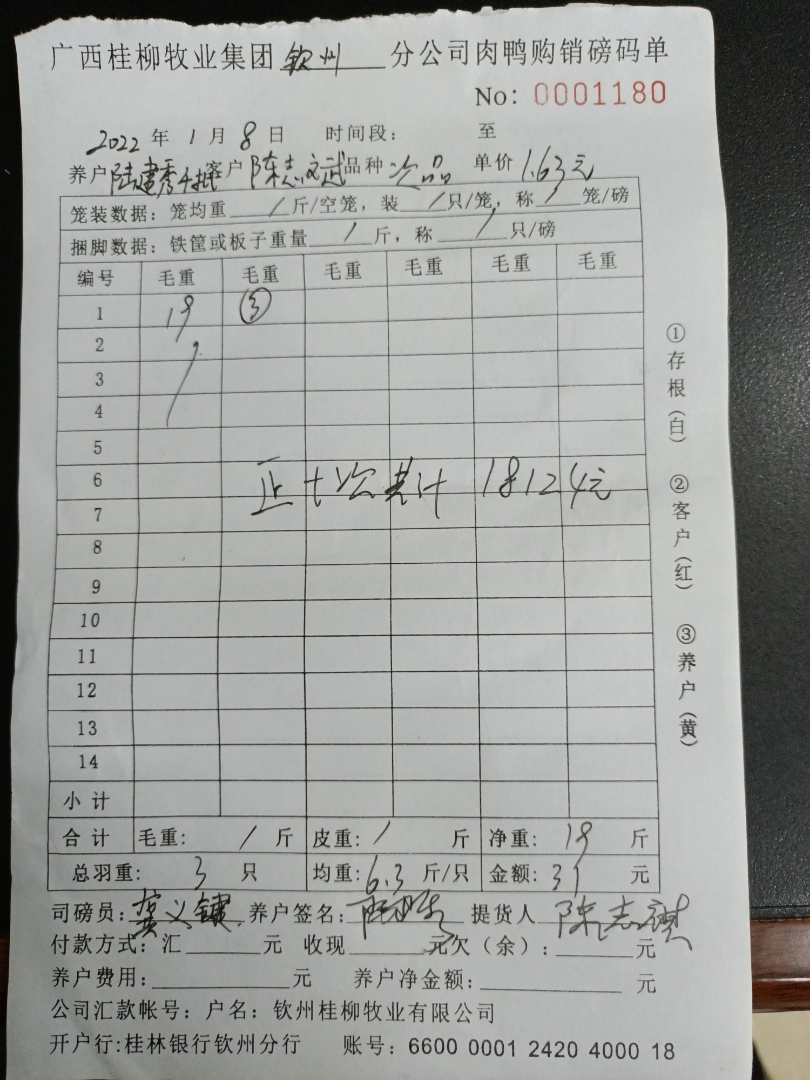 广西桂柳牧业集团 钦州 分公司肉鸭购销磅码单
No: 0001180
2022 年 1 月 8 日 时间段: 至
养户 陆建秀 客户 陈志 品种 次品 单价 1.63元
笼装数据: 笼均重 / 斤/空笼, 装 / 只/笼, 称 / 笼/磅
捆脚数据: 铁筐或板子重量 / 斤, 称 / 只/磅
编号 毛重 毛重 毛重 毛重 毛重 毛重
1 19 ③
2
3
4
5
6
正十次共计 18124元
7
8
9
10
11
12
13
14
小计
合计 毛重: / 斤 皮重: / 斤 净重: 19 斤
总羽重: 3 只 均重: 6.3 斤/只 金额: 31 元
司磅员: 养户签名: 提货人 陈志
付款方式: 汇 元 收现 元 欠(余): 元
养户费用: 元 养户净金额: 元
公司汇款帐号: 户名: 钦州桂柳牧业有限公司
开户行:桂林银行钦州分行 账号: 6600 0001 2420 4000 18
①存根(白) ②客户(红) ③养户(黄)